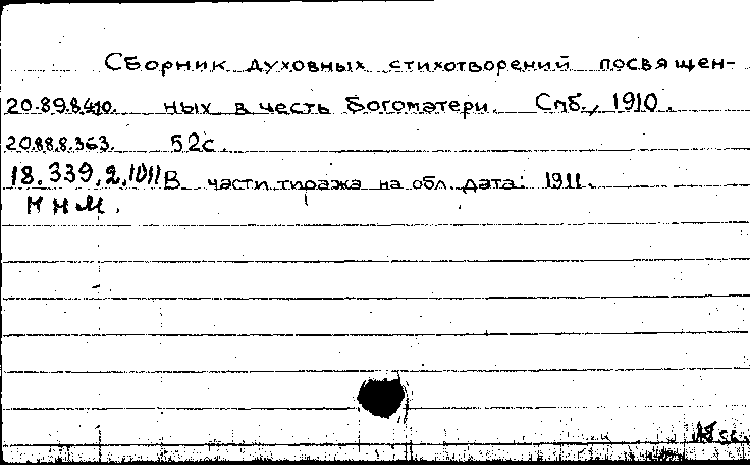 Сборник духовных стихотворений посвящен-
20.89.8.410. ных в честь Богоматери. Спб., 1910.
20.88.8.363. 52с.
18.339.2.1011 В части тиража на обл. дата: 1911.
КНМ.